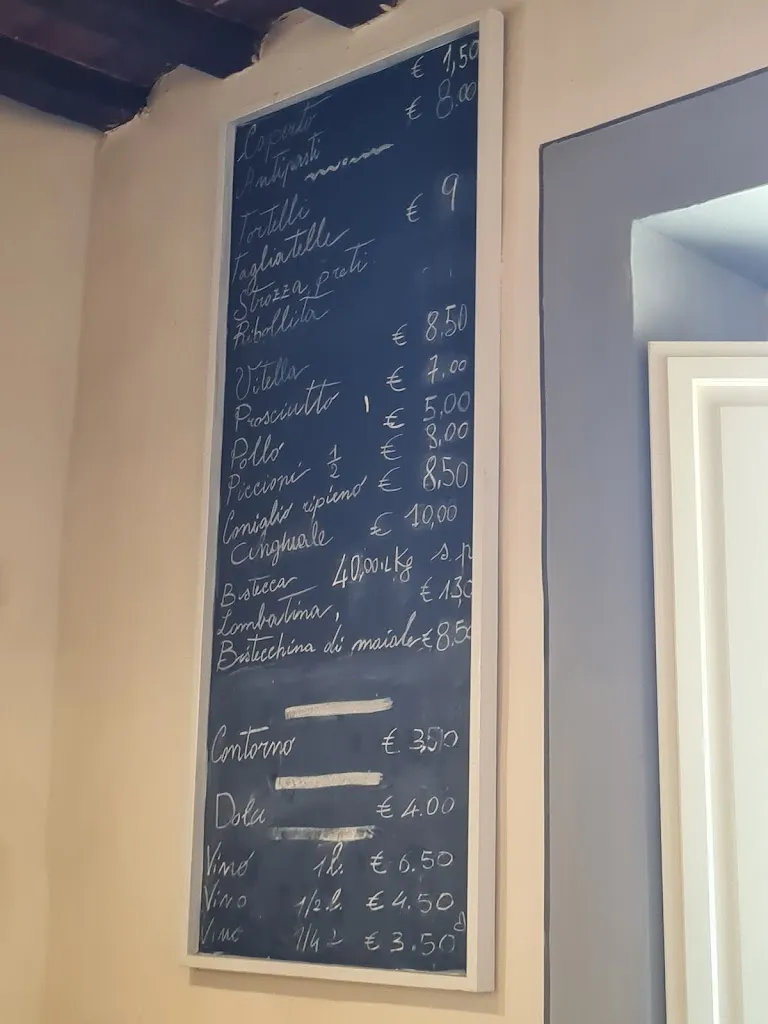 Coperto € 1,50
Antipasti € 8.00
Tortelli
Tagliatelle € 9
Strozza preti
Ribollita
Vitella € 8.50
Prosciutto € 7.00
Pollo € 5,00
Piccioni 1/2 € 8,00
Coniglio ripieno € 8,50
Cinghiale € 10,00
Bistecca 40,00 Kg s.p
Lombatina, € 13,0
Bistecchina di maiale € 8.50
Contorno € 3,50
Dolci € 4.00
Vino 1 l. € 6.50
Vino 1/2 l. € 4.50
Vino 1/4 € 3.50